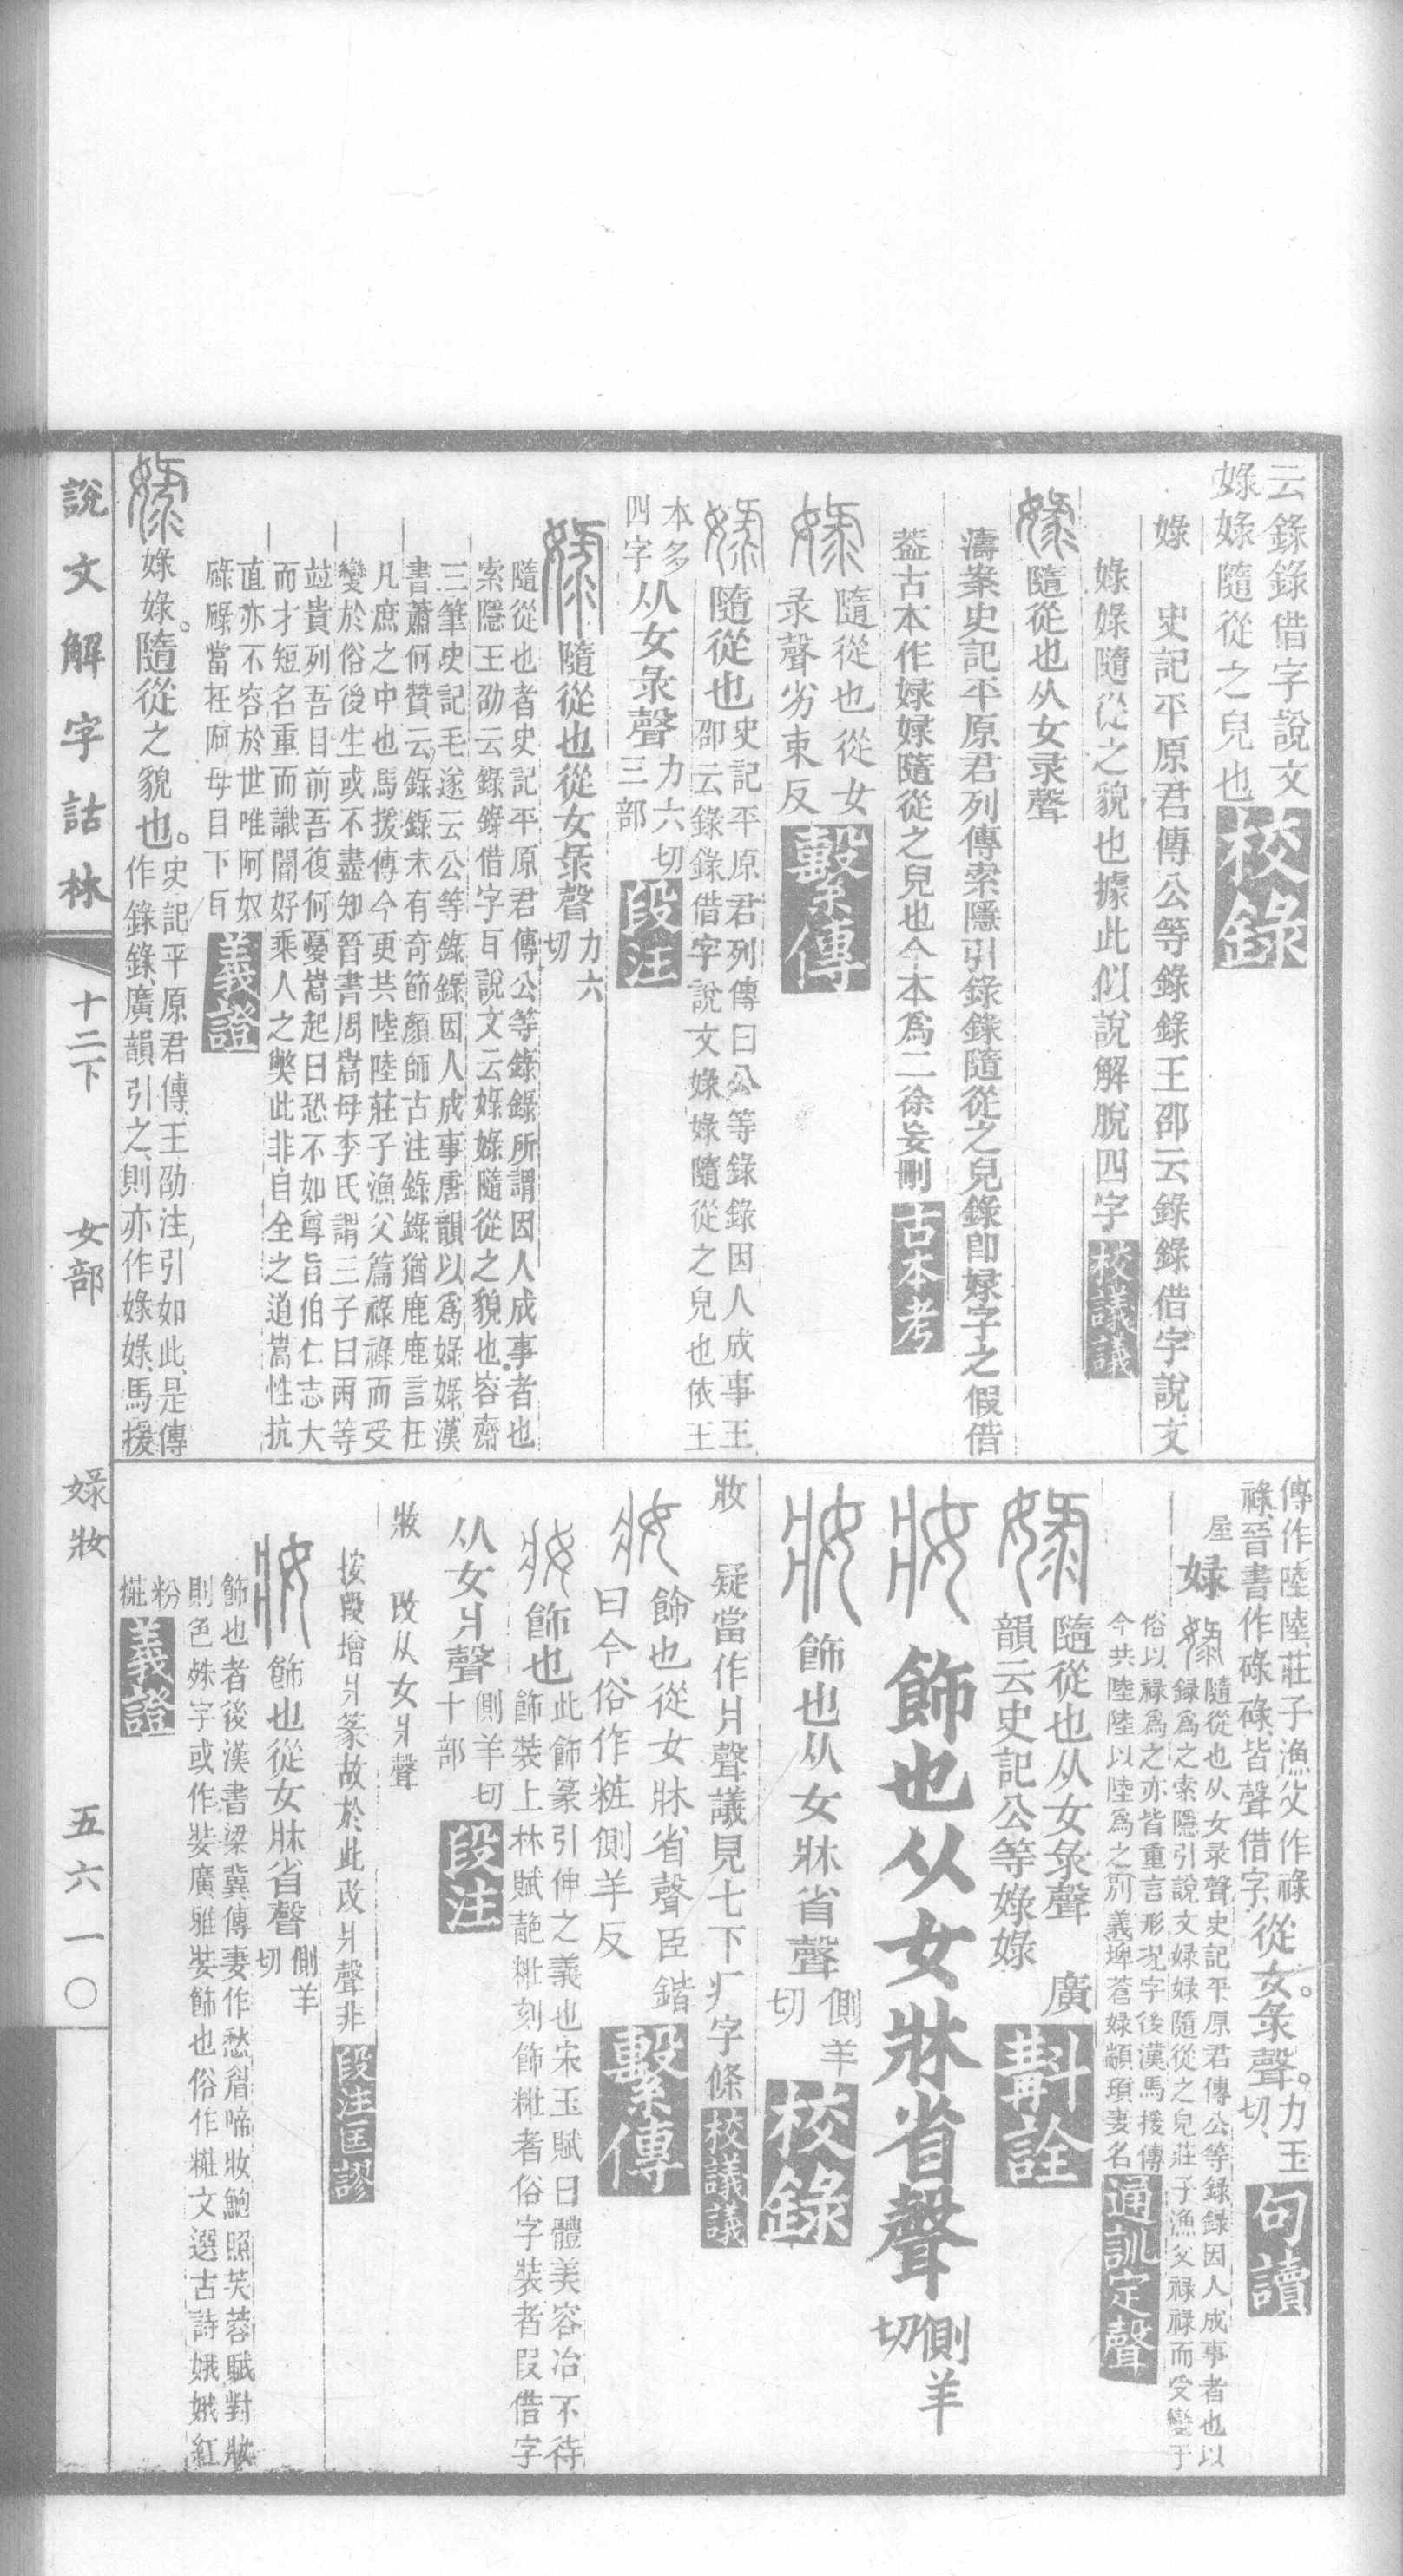 云錄錄借字說文
娽娽隨從之皃也校錄
娽 史記平原君傳公等錄錄王邵云錄錄借字說文
娽娽隨從之貌也據此似說解脫四字校議議
隨從也从女录聲
濤案史記平原君列傳索隱引錄錄隨從之皃錄卽娽字之假借
葢古本作娽娽隨從之皃也今本爲二徐妄刪古本考
隨從也從女
录聲劣束反繫傳
隨從也史記平原君列傳曰公等錄錄因人成事王
邵云錄錄借字說文娽娽隨從之皃也依王
本多
四字从女彔聲力六切
三部段注
隨從也從女彔聲力六
切
隨從也者史記平原君傳公等錄錄所謂因人成事者也
索隱王劭云錄錄借字㠯說文云娽娽隨從之貌也容齋
三筆史記毛遂云公等錄錄因人成事唐韻以爲娽娽漢
書蕭何贊云錄錄未有奇節顏師古注錄錄猶鹿鹿言在
凡庶之中也馬援傳今更共陸陸莊子漁父篇祿祿而受
變於俗後生或不盡知晉書周嵩母李氏謂三子曰爾等
竝貴列吾目前吾復何憂嵩起曰恐不如尊旨伯仁志大
而才短名重而識闇好乘人之獘此非自全之道嵩性抗
直亦不容於世唯阿奴
碌碌當在阿母目下㠯義證
娽娽。隨從之貌也。史記平原君傳、王劭注引如此、是傳
作錄錄、廣韻引之、則亦作娽娽、馬援
說文解字詁林 十二下 女部 娽妝 五六一〇
傳作陸陸、莊子漁父作祿
祿、晉書作碌碌、皆聲借字、從女彔聲。力玉
切、句讀
屋 娽 隨從也从女录聲史記平原君傳公等録録因人成事者也以
録爲之索隱引說文娽娽隨從之皃莊子漁父祿祿而受變于
俗以祿爲之亦皆重言形況字後漢馬援傳
今共陸陸以陸爲之別義埤蒼娽顓頊妻名通訓定聲
隨從也从女彔聲 廣
韻云史記公等娽娽斠詮
飾也从女牀省聲側羊
切
飾也从女牀省聲側羊
切校錄
妝 疑當作爿聲議見七下疒字條校議議
飾也從女牀省聲臣鍇
曰今俗作粧側羊反繫傳
飾也此飾篆引伸之義也宋玉賦曰體美容冶不待
飾裝上林賦靘糚刻飾糚者俗字裝者叚借字
从女爿聲側羊切
十部段注
妝 改从女爿聲
按段增爿篆故於此改爿聲非段注匡謬
飾也從女牀省聲側羊
切
飾也者後漢書梁冀傳妻作愁眉啼妝鮑照芙蓉賦對妝
則色殊字或作娤廣雅娤飾也俗作糚文選古詩娥娥紅
粉
糚義證